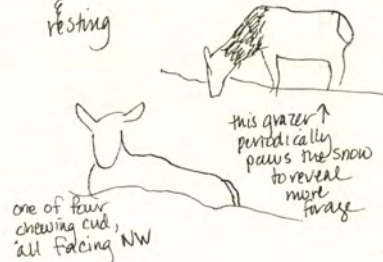 &
resting
this grazer ↑
periodically
paws the snow
to reveal
more
forage
one of four
chewing cud,
all facing NW